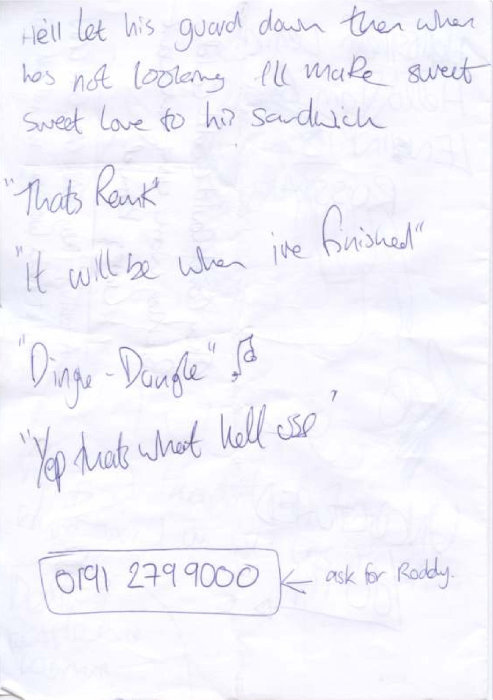 He'll let his guard down then when
hes not looking I'll make sweet
sweet love to his sandwich
"Thats Rank"
"It will be when ive finished"
"Dinge - Dangle" ♫
"Yep thats what hell use"
0191 2799000 ← ask for Roddy.